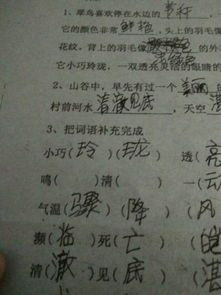 1、翠鸟喜欢停在水边的苇秆
它的颜色非常鲜艳，头上的羽毛像
花纹，背上的羽毛像 的外
它小巧玲珑，一双透亮灵活的眼睛
2、山谷中，早先有过一个美丽
村前河水清澈见底，天空
3、把词语补充完成
小巧(玲)(珑) 透(亮
鸣( )清( ) 一(
气温(骤)(降) (风
濒(临)死(亡) (皑
清(澈)见(底) (清